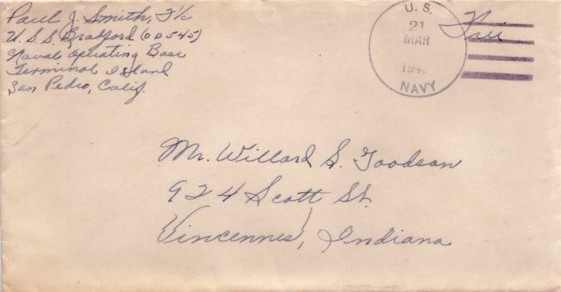 Paul J. Smith, F1/c
U.S.S. Bradford (DD545)
Naval Operating Base
Terminal Island
San Pedro, Calif.
U. S.
21
MAR
NAVY
Free
Mr. Willard S. Goodson
924 Scott St.
Vincennes, Indiana